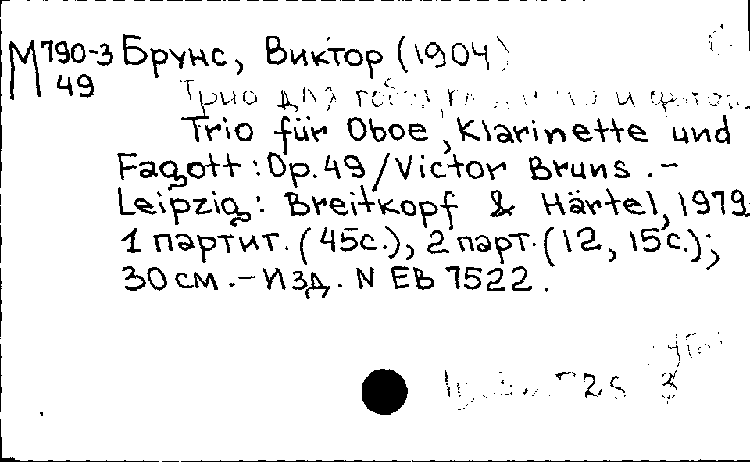 М790-3 Брунс, Виктор (1904)
49
Трио для и
Trio für Oboe, Klarinette und
Fagott : Op. 49 / Victor Bruns . –
Leipzig : Breitkopf & Härtel, 1979.
1 партит. (45с.), 2 парт. (12, 15с.);
30 см . – Изд. N EB 7522 .